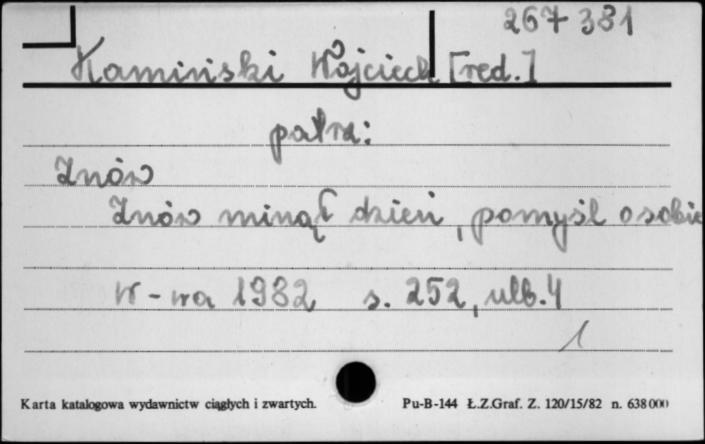 267 381
Kamiński Wojciech [red.]
patrz:
Znów
Znów minął dzień, pomyśl o sobie
W-wa 1982 s. 252, ulb. 4
1
Karta katalogowa wydawnictw ciągłych i zwartych. Pu-B-144 Ł.Z.Graf. Z. 120/15/82 n. 638000